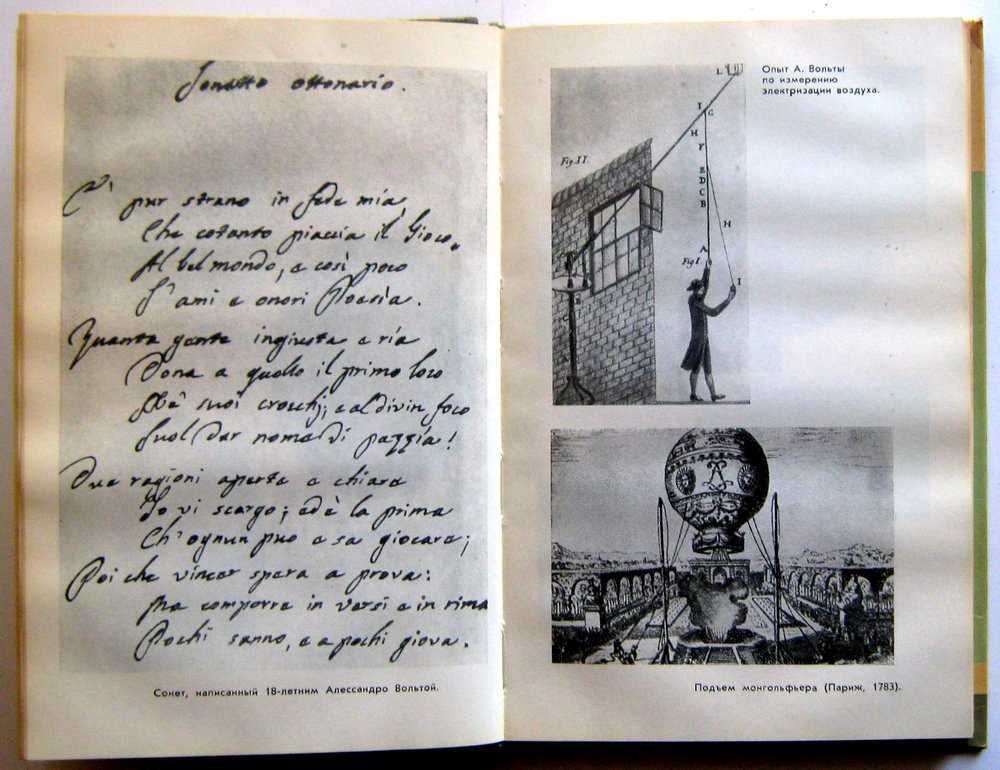 Sonetto ottonario.
E' pur strano in fede mia,
Che cotanto piaccia il Gioco,
Al bel mondo, e così poco
S'ami e onori Poesia.
Quanta gente ingiusta e ria
Dona a quello il primo loco
Ne' suoi crocchj; e al divin foco
Suol dar nome di pazzia!
Due ragioni aperte e chiare
Io vi scorgo; ed è la prima
Ch'ognun puo e sa giocare;
Poi che vincer spera a prova:
Ma comporre in versi e in rima
Pochi sanno, e a pochi giova.
Сонет, написанный 18-летним Алессандро Вольтой.
Опыт А. Вольты
по измерению
электризации воздуха.
L
I G
H
F
Fig. II.
E
D
C
B
H
A
Fig. I.
I
Подъем монгольфьера (Париж, 1783).